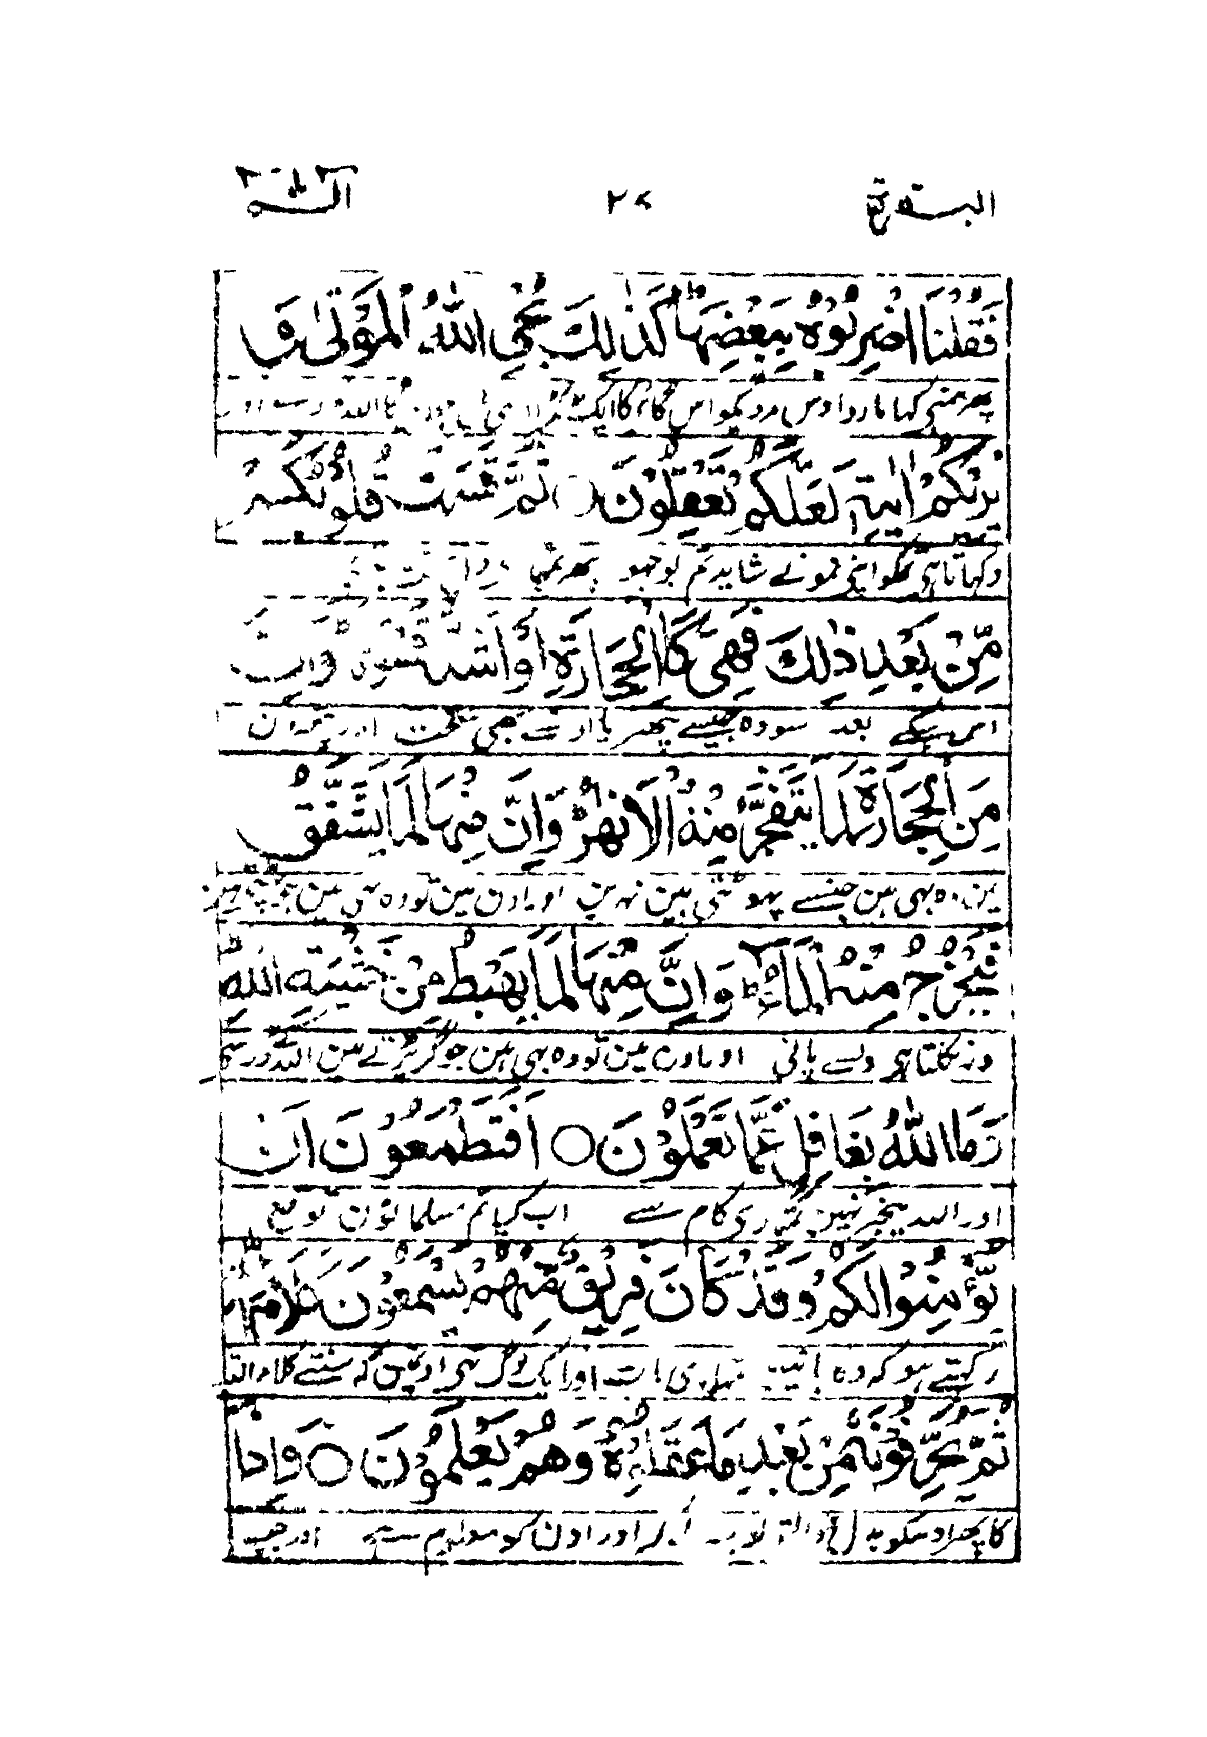 البقرة ٢٧ الم
فَقُلْنَا اضْرِبُوْهُ بِبَعْضِهَا ؕ كَذٰلِكَ يُحْيِ اللّٰهُ الْمَوْتٰى وَ
پھر ہمنے کہا مارو اوس مردیکو اس گائے کا ایک اللہ اور
يُرِيْكُمْ اٰيٰتِهٖ لَعَلَّكُمْ تَعْقِلُوْنَ ○ ثُمَّ قَسَتْ قُلُوْبُكُمْ
دکہاتا ہی تمکو اپنی نمونے شاید تم بوجہو پھر
مِّنْ بَعْدِ ذٰلِكَ فَهِيَ كَالْحِجَارَةِ اَوْ اَشَدُّ قَسْوَةً ؕ وَاِنَّ
اس کے بعد سو وہ جیسے پتھر یا اون سے بھی سخت اور پتھرون
مِنَ الْحِجَارَةِ لَمَا يَتَفَجَّرُ مِنْهُ الْاَنْهٰرُ ؕ وَاِنَّ مِنْهَا لَمَا يَشَّقَّقُ
مین وہ بہی ہین جنسے پہوٹتی ہین نہرین اور اون مین تو وہ بہی ہین جو پھٹتے ہین
فَيَخْرُجُ مِنْهُ الْمَآءُ ؕ وَاِنَّ مِنْهَا لَمَا يَهْبِطُ مِنْ خَشْيَةِ اللّٰهِ ؕ
نکلتا ہی پانی اور اون مین تو وہ بہی ہین جو گر پڑتے ہین اللہ
وَمَا اللّٰهُ بِغَافِلٍ عَمَّا تَعْمَلُوْنَ ○ اَفَتَطْمَعُوْنَ اَنْ
اور اللہ بیخبر نہین تمہاری کام سے اب کیا تم مسلمانون توقع
يُّؤْمِنُوْا لَكُمْ وَقَدْ كَانَ فَرِيْقٌ مِّنْهُمْ يَسْمَعُوْنَ كَلَامَ اللّٰهِ
رکہتے ہو کہ وہ تمہاری بات اور ایک لوگ کہ سنتے کلام اللہ
ثُمَّ يُحَرِّفُوْنَهٗ مِنْ بَعْدِ مَا عَقَلُوْهُ وَهُمْ يَعْلَمُوْنَ ○ وَاِذَا
کا پھر اوسکو بدل ڈالتے اور اون کو معلوم ہے اور جب